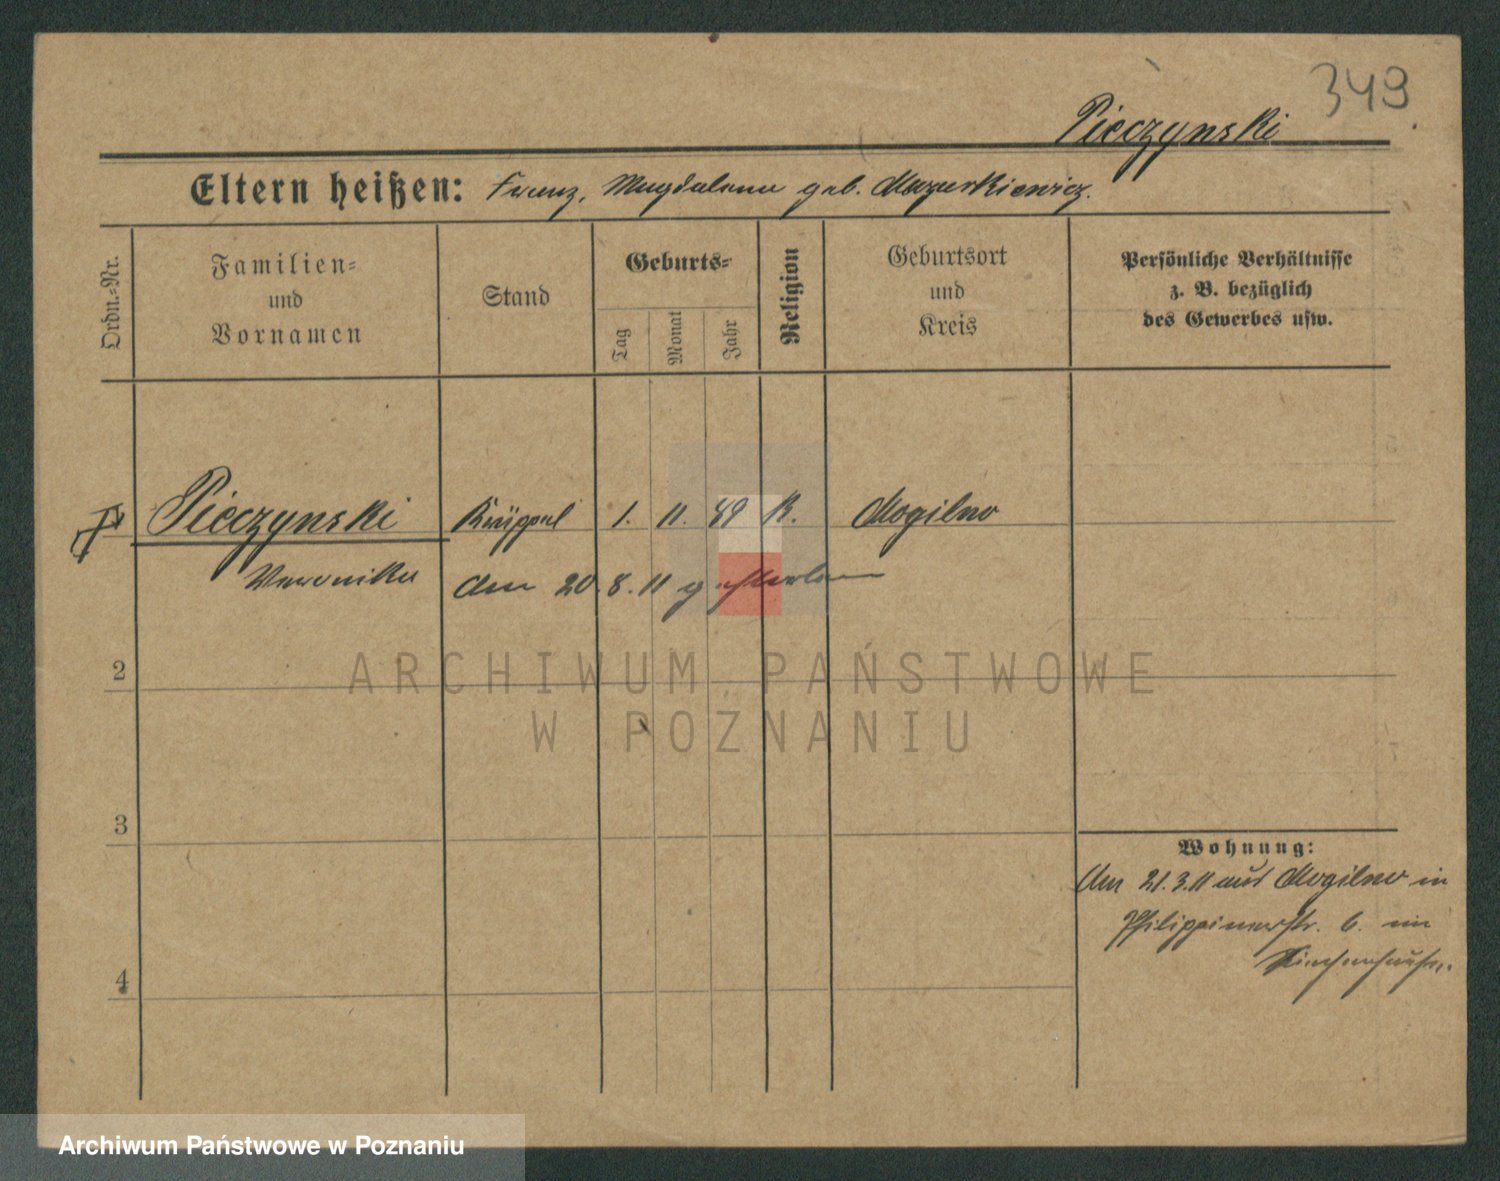 349
Pieczynski
Eltern heißen: Franz, Magdalena geb. Mazurkiewicz.
Ordn.-Nr.
Familien-
und
Vornamen
Stand
Geburts-
Tag
Monat
Jahr
Religion
Geburtsort
und
Kreis
Persönliche Verhältnisse
z. B. bezüglich
des Gewerbes usw.
Pieczynski Krüppel 1. 11. 49 K. Mogilno
Veronika am 20.8.11 gestorben
2
ARCHIWUM PAŃSTWOWE
W POZNANIU
3
Wohnung:
Am 21.3.11 aus Mogilno in
Philippinerstr. 6. im
4
Archiwum Państwowe w Poznaniu